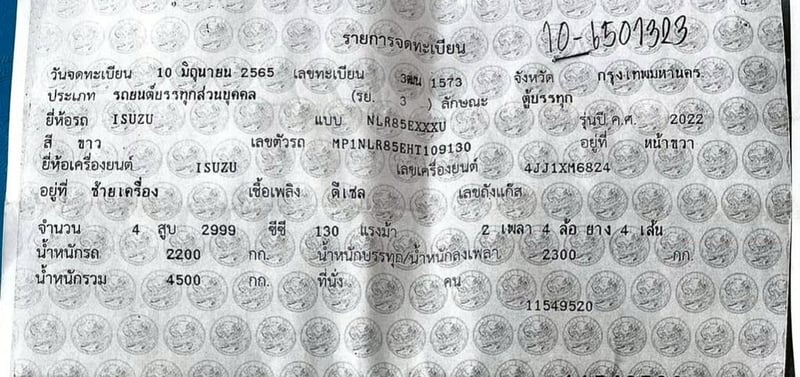 รายการจดทะเบียน 10-6501323
วันจดทะเบียน 10 มิถุนายน 2565 เลขทะเบียน 3ฒน 1573 จังหวัด กรุงเทพมหานคร
ประเภท รถยนต์บรรทุกส่วนบุคคล (รย. 3 ) ลักษณะ ตู้บรรทุก
ยี่ห้อรถ ISUZU แบบ NLR85EXXXU รุ่นปี ค.ศ. 2022
สี ขาว เลขตัวรถ MP1NLR85EHT109130 อยู่ที่ หน้าขวา
ยี่ห้อเครื่องยนต์ ISUZU เลขเครื่องยนต์ 4JJ1XM6824
อยู่ที่ ซ้ายเครื่อง เชื้อเพลิง ดีเซล เลขถังแก๊ส
จำนวน 4 สูบ 2999 ซีซี 130 แรงม้า 2 เพลา 4 ล้อ ยาง 4 เส้น
น้ำหนักรถ 2200 กก. น้ำหนักบรรทุก/น้ำหนักลงเพลา 2300 กก.
น้ำหนักรวม 4500 กก. ที่นั่ง คน
11549520